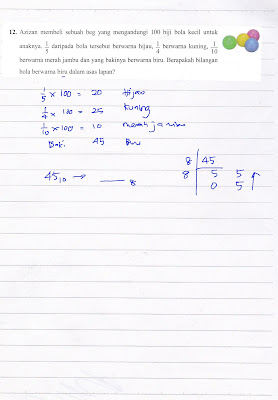 12. Azizan membeli sebuah beg yang mengandungi 100 biji bola kecil untuk
anaknya. 1/5 daripada bola tersebut berwarna hijau, 1/4 berwarna kuning, 1/10
berwarna merah jambu dan yang bakinya berwarna biru. Berapakah bilangan
bola berwarna biru dalam asas lapan?
1/5 × 100 = 20 Hijau
1/4 × 100 = 25 Kuning
1/10 × 100 = 10 merah jambu
Baki 45 Biru
8 | 45
45₁₀ → ___ ₈ 8 | 5 5 ↑
0 5